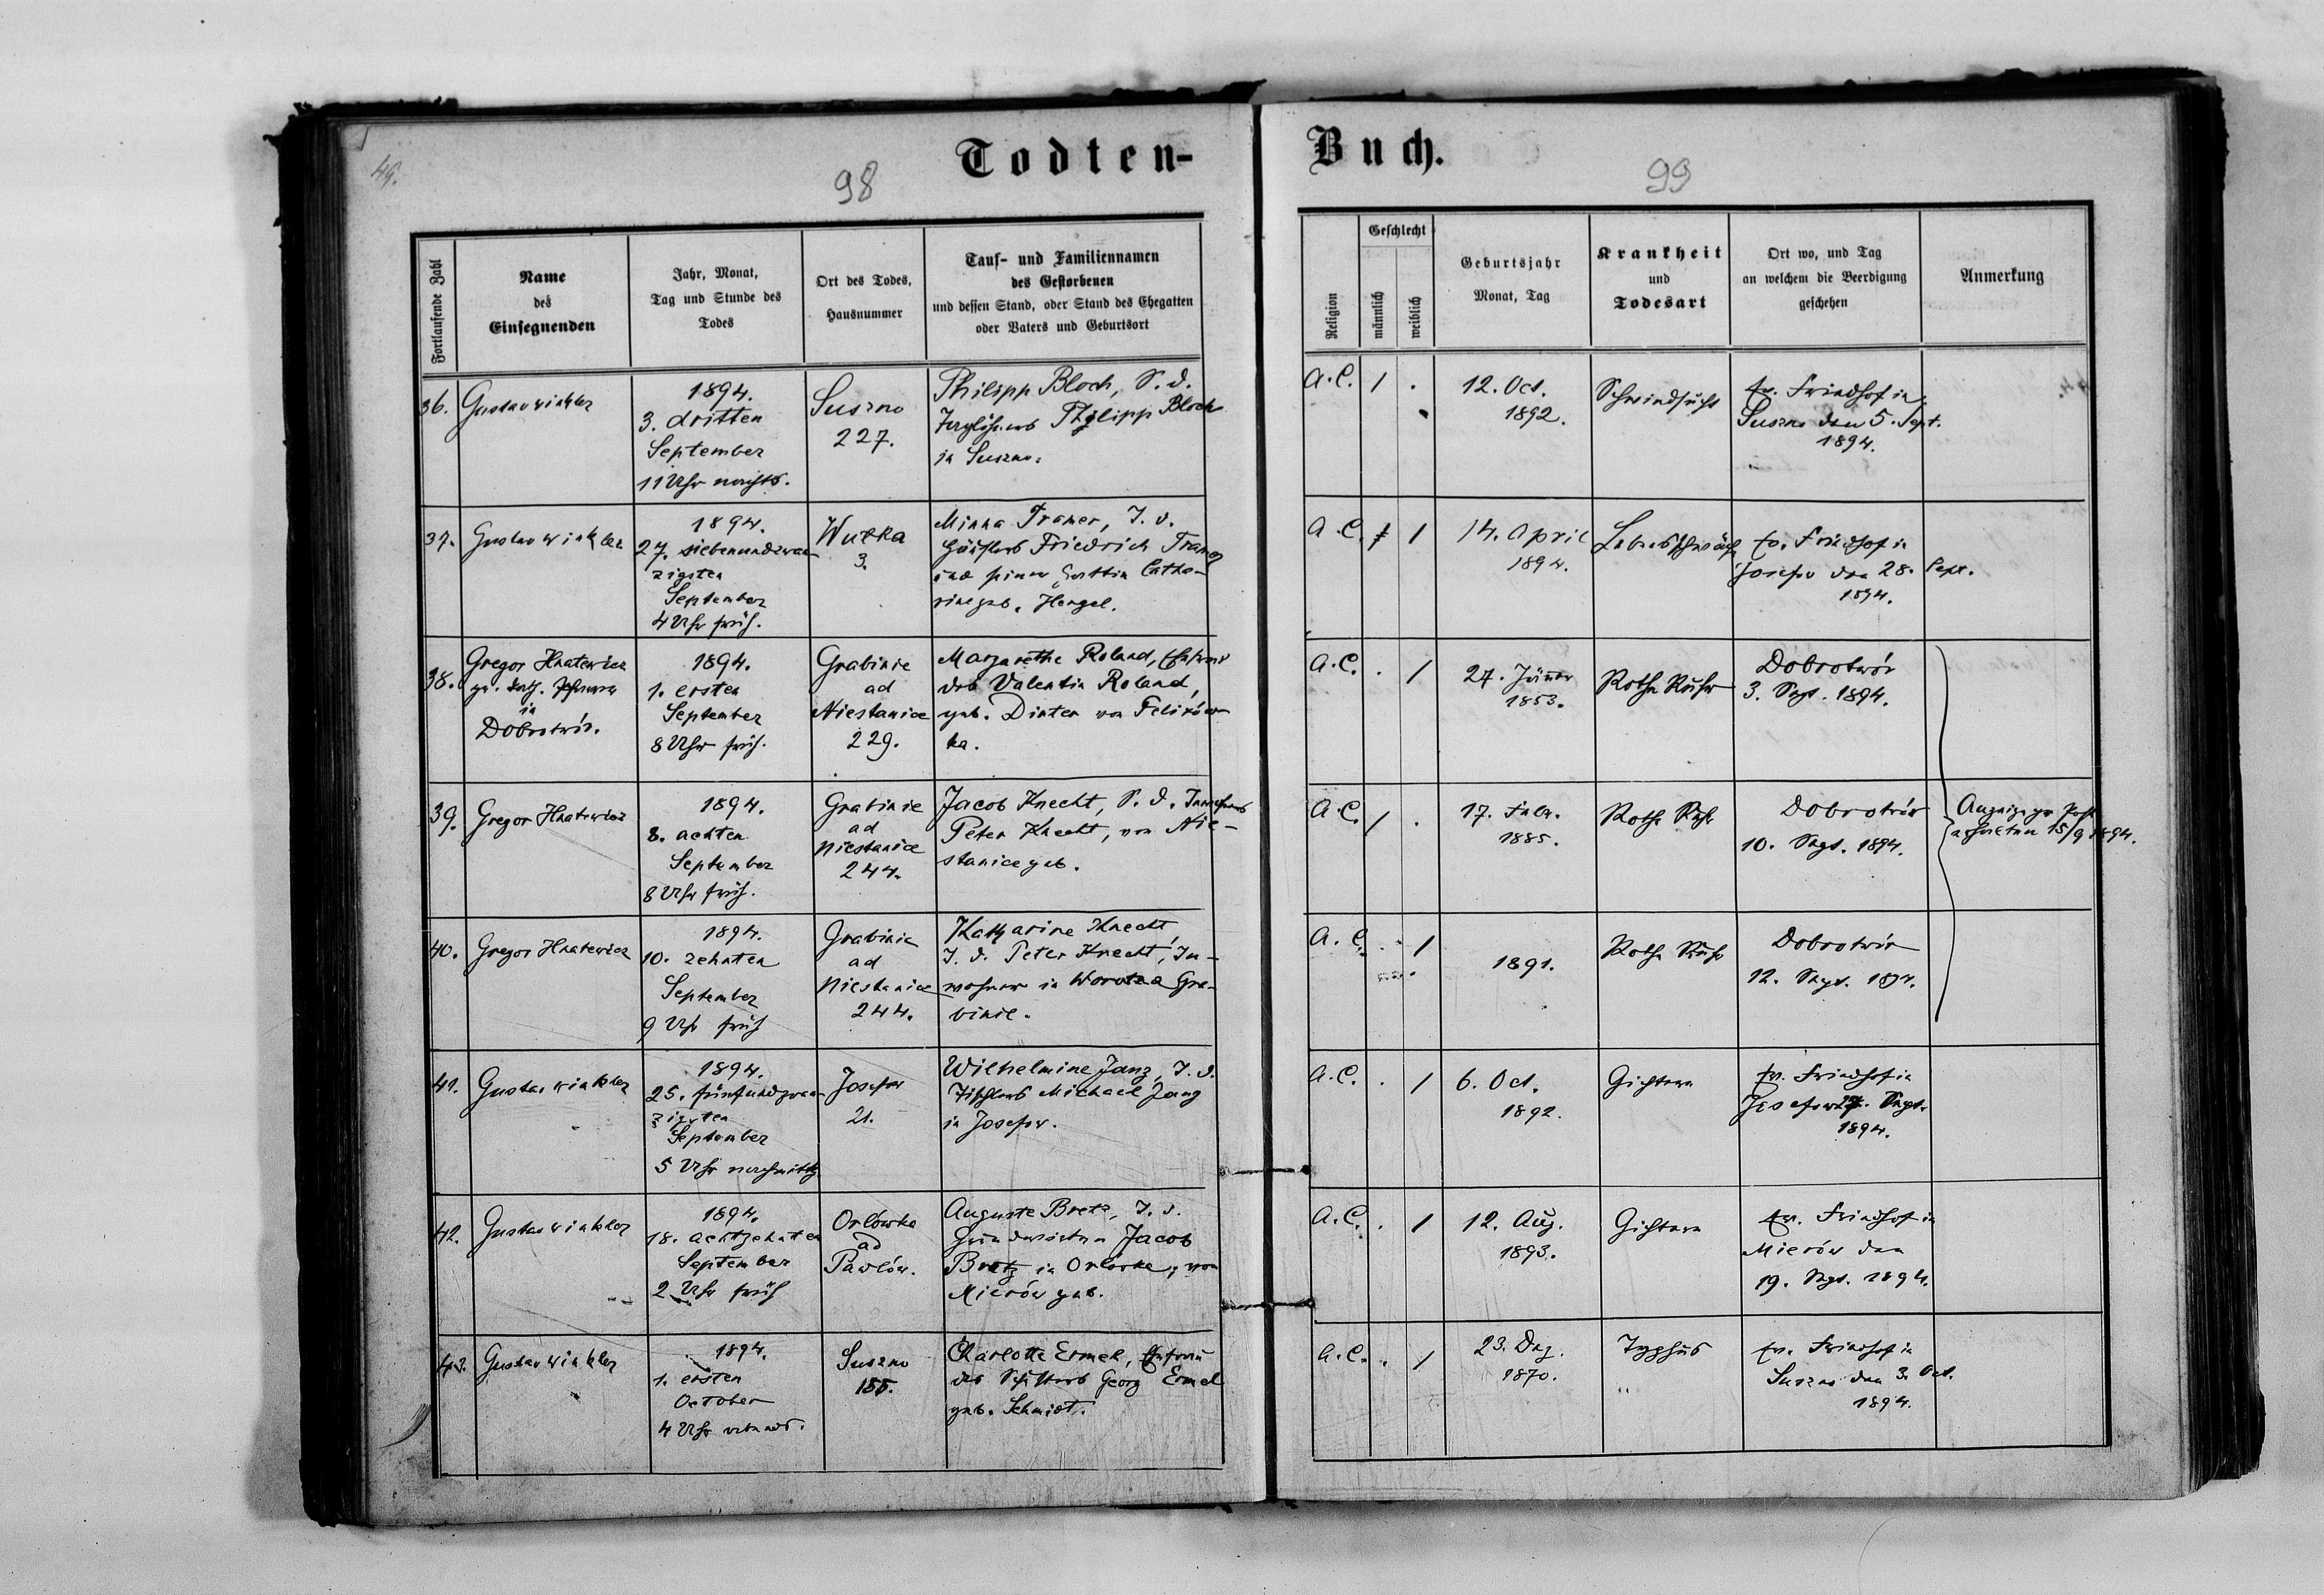 49.
98
Todten-
Buch.
99
Fortlaufende Zahl
Name
des
Einsegnenden
Jahr, Monat,
Tag und Stunde des
Todes
Ort des Todes,
Hausnummer
Tauf- und Familiennamen
des Gestorbenen
und dessen Stand, oder Stand des Ehegatten
oder Vaters und Geburtsort
Religion
Geschlecht
männlich
weiblich
Geburtsjahr
Monat, Tag
Krankheit
und
Todesart
Ort wo, und Tag
an welchem die Beerdigung
geschehen
Anmerkung
36.
Gustav Winkler
1894.
3. dritten
September
11 Uhr nachts.
Suszno
227.
Philipp Bloch, S. d.
Philipp Bloch
in Suszno.
A.C.
1
.
12. Oct.
1892.
Schwindsucht
Ev. Friedhof in
Suszno den 5. Sept.
1894.
37.
Gustav Winkler
1894.
27. siebenundzwan-
zigsten
September
4 Uhr früh.
Wutka
3.
Minna Tramer, T. d.
Häuslers Friedrich Tramer
und seiner Gattin Catha-
rine geb. Hengel.
A.C.
1
14. April
1894.
Lebensschwäche
Ev. Friedhof in
Josefow den 28. Sept.
1894.
38.
Gregor Hnatewicz
gr. kath. Pfarrer
in
Dobrotwór.
1894.
1. ersten
September
8 Uhr früh.
Grabinie
ad
Niestanice
229.
Margarethe Roland, Ehefrau
des Valentin Roland,
geb. Dinter von Felixów-
ka.
A.C.
.
1
24. Jänner
1853.
Rothe Ruhr
Dobrotwór
3. Sept. 1894.
39.
Gregor Hnatewicz
1894.
8. achten
September
8 Uhr früh.
Grabinie
ad
Niestanice
244.
Jacob Knecht, S. d. Inwohners
Peter Knecht, von Nie-
stanice geb.
A.C.
1
.
17. Febr.
1885.
Rothe Ruhr
Dobrotwór
10. Sept. 1894.
Anzeige pr Post
erhalten 15/9 1894.
40.
Gregor Hnatewicz
1894.
10. zehnten
September
9 Uhr früh
Grabinie
ad
Niestanice
244.
Katharine Knecht,
T. d. Peter Knecht, In-
wohner in Gra-
binie.
A.C.
.
1
1891.
Rothe Ruhr
Dobrotwór
12. Sept. 1894.
41.
Gustav Winkler
1894.
25. fünfundzwan-
zigsten
September
5 Uhr nachmittg
Josefow
21.
Wilhelmine Janz, T. d.
Tischlers Michael Janz
in Josefow.
A.C.
.
1
6. Oct.
1892.
Gichtern
Ev. Friedhof in
Josefow 27. Sept.
1894.
42.
Gustav Winkler
1894.
18. achtzehnten
September
2 Uhr früh
Orlówka
ad
Pawlów.
Auguste Bretz, T. d.
Grundwirten Jacob
Bretz in Orlówka, von
Mierów geb.
A.C.
.
1
12. Aug.
1893.
Gichtern
Ev. Friedhof in
Mierów den
19. Sept. 1894.
43.
Gustav Winkler
1894.
1. ersten
October
4 Uhr abends.
Suszno
155.
Charlotte Ermel, Ehefrau
des Georg Ermel
geb. Schmidt.
A.C.
.
1
23. Dez.
1870.
Typhus
Ev. Friedhof in
Suszno den 3. Oct.
1894.